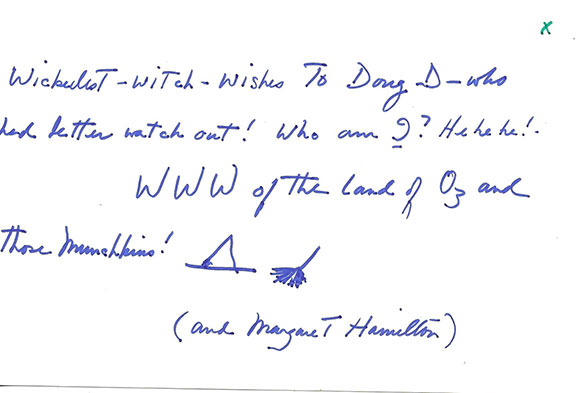 x
Wickedest-witch-wishes To Doug D-who
had better watch out! Who am I? He he he!.
WWW of the Land of Oz and
those Munchkins!
(and Margaret Hamilton)